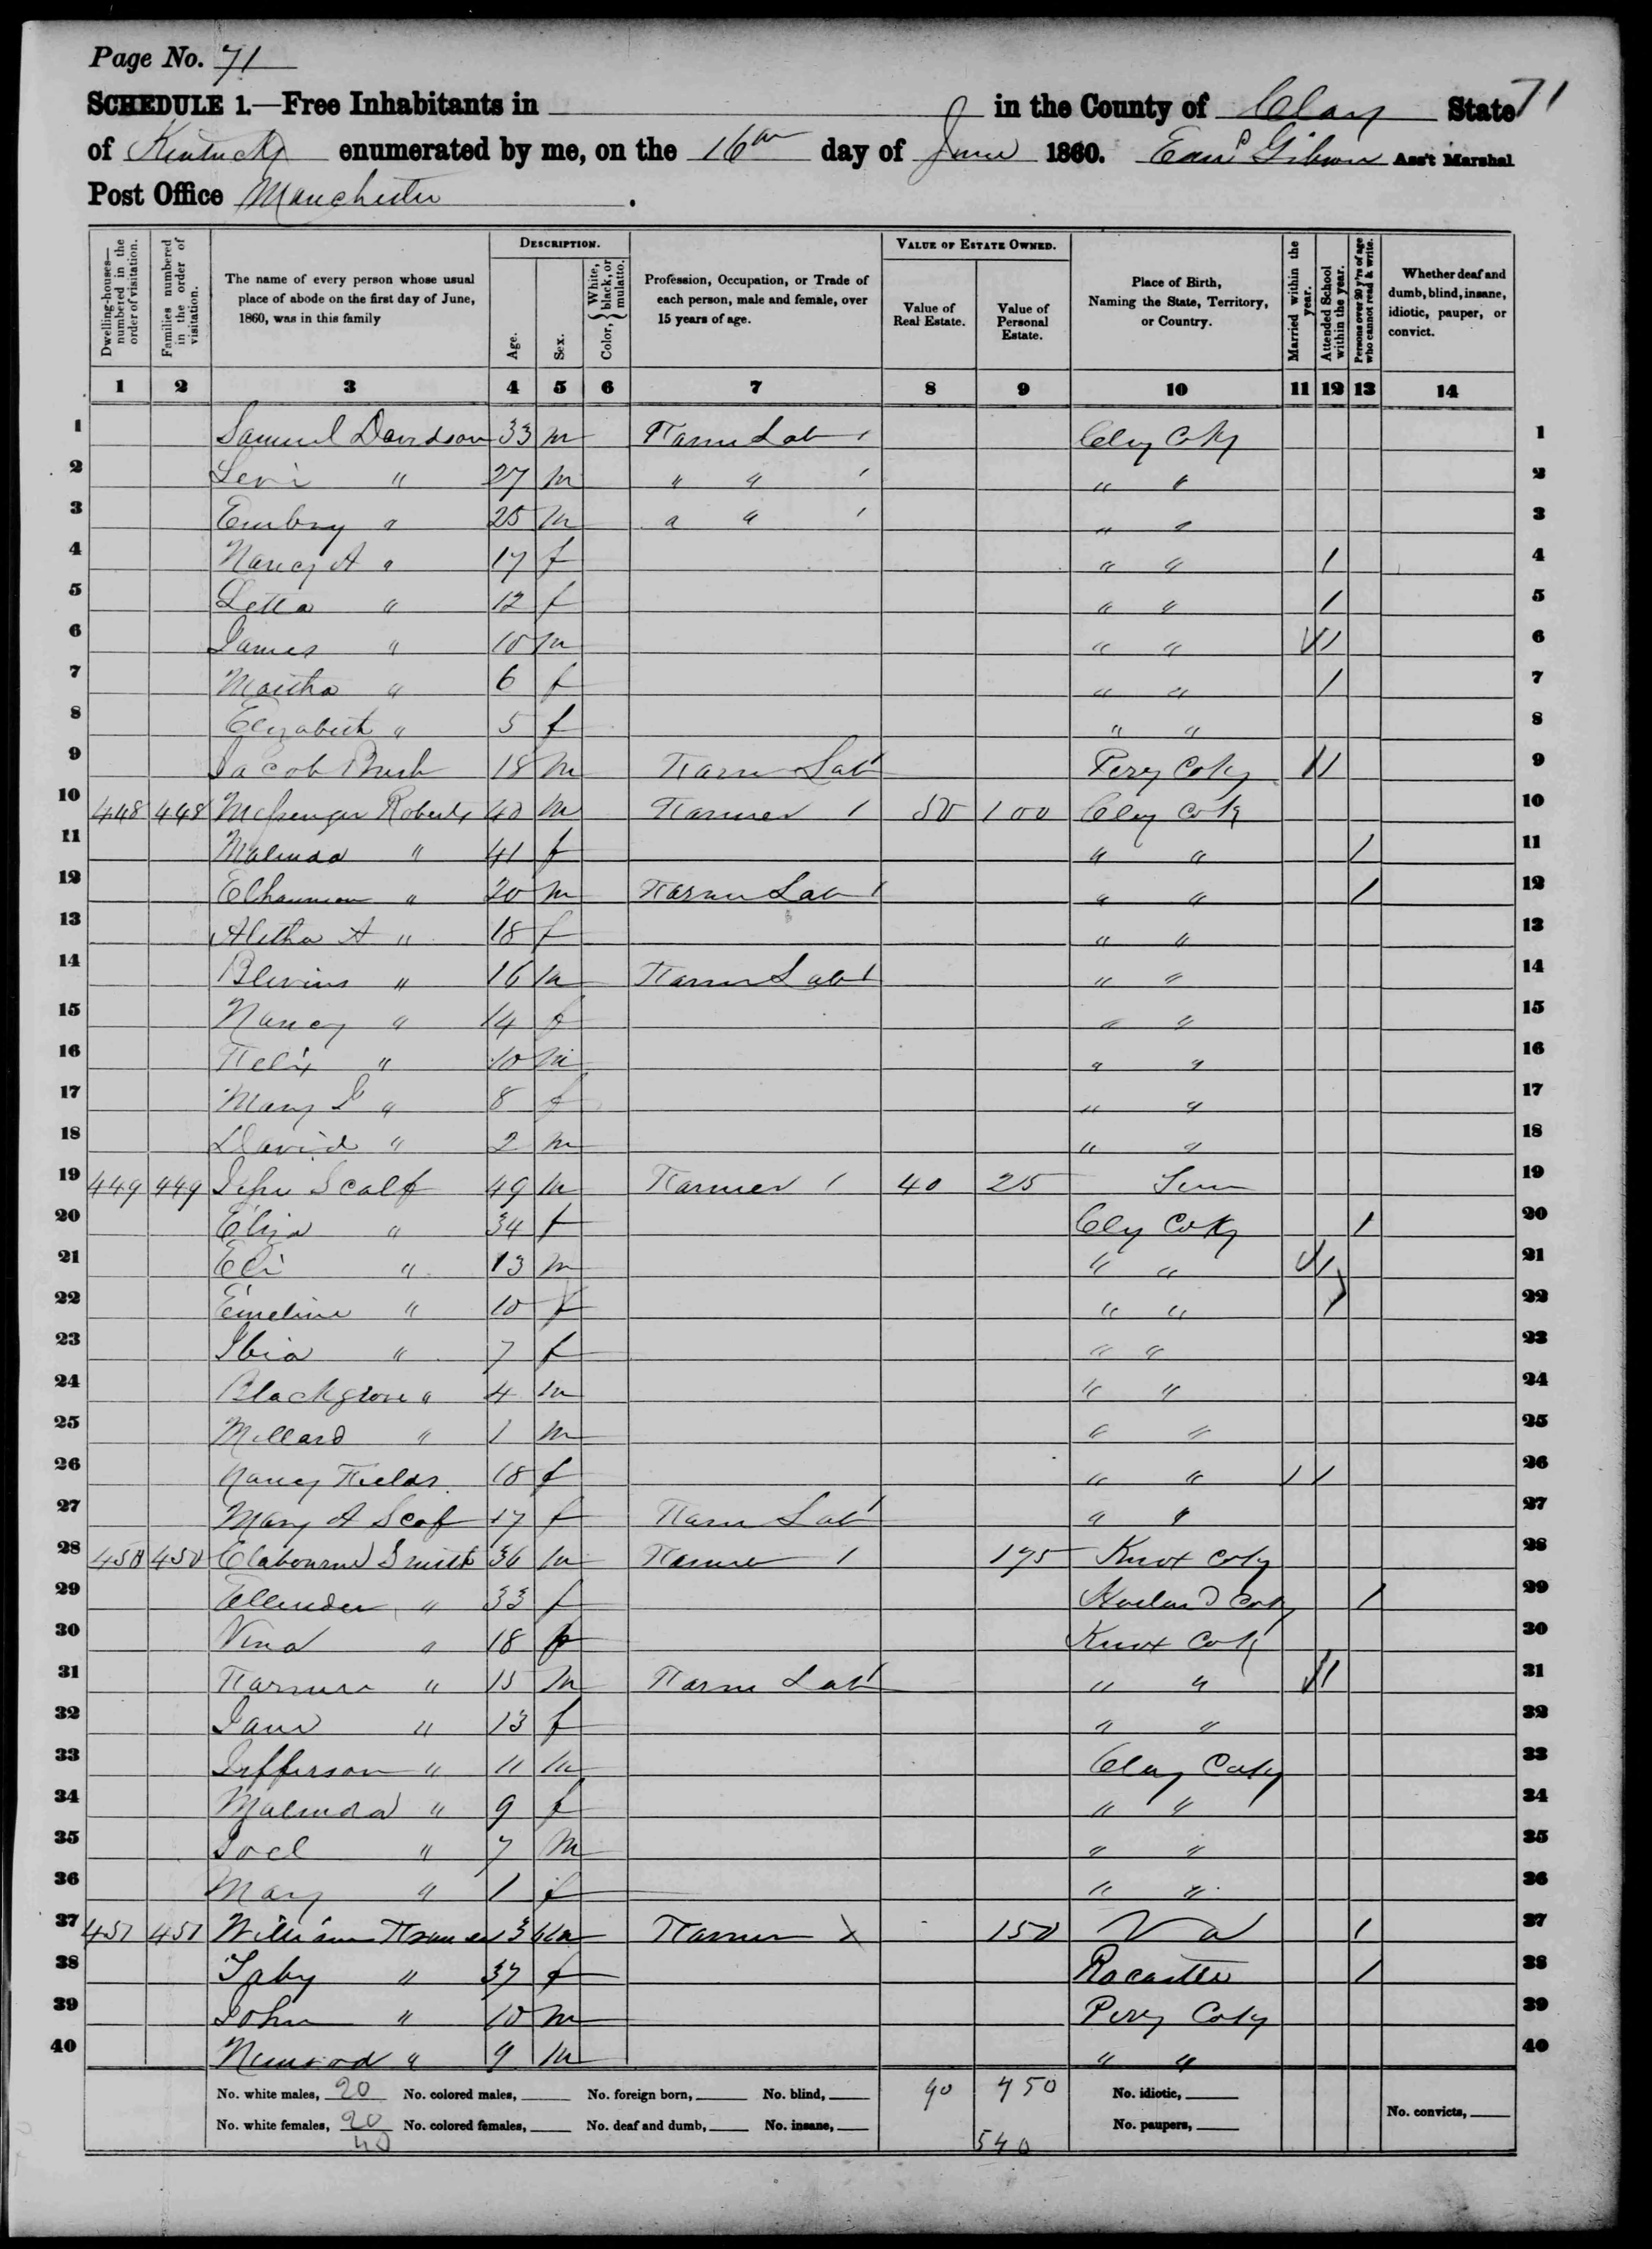 Page No. 71
71
SCHEDULE 1.—Free Inhabitants in in the County of Clay State
of Kentucky enumerated by me, on the 16th day of June 1860. Gibson Ass't Marshal
Post Office Manchester .
Dwelling-houses—numbered in the order of visitation.
Families numbered in the order of visitation.
The name of every person whose usual place of abode on the first day of June, 1860, was in this family
DESCRIPTION.
Age.
Sex.
Color, { White, black, or mulatto. }
Profession, Occupation, or Trade of each person, male and female, over 15 years of age.
VALUE OF ESTATE OWNED.
Value of Real Estate.
Value of Personal Estate.
Place of Birth, Naming the State, Territory, or Country.
Married within the year.
Attended School within the year.
Persons over 20 y'rs of age who cannot read & write.
Whether deaf and dumb, blind, insane, idiotic, pauper, or convict.
1 2 3 4 5 6 7 8 9 10 11 12 13 14
1 Samuel Davidson 33 m Farm Lab 1 Clay Co Ky 1
2 Levi " 27 m " " 1 " " 2
3 Embry " 25 m " " 1 " " 3
4 Nancy A " 17 f " " 1 4
5 Letta " 12 f " " 1 5
6 James " 10 m " " 1 6
7 Martha " 6 f " " 1 7
8 Elizabeth " 5 f " " 8
9 Jacob Bush 18 m Farm Lab 1 Pery Co Ky 1 1 9
10 448 448 Messenger Roberts 40 m Farmer 1 50 100 Clay Co Ky 10
11 Malinda " 41 f " " 1 11
12 Elhannon " 20 m Farm Lab 1 " " 1 12
13 Aletha A " 18 f " " 13
14 Blevins " 16 m Farm Lab 1 " " 14
15 Nancy " 14 f " " 15
16 Felix " 10 m " " 16
17 Mary J " 8 f " " 17
18 David " 2 m " " 18
19 449 449 Jesse Scalf 49 m Farmer 1 40 25 Tenn 19
20 Eliza " 34 f Clay Co Ky 1 20
21 Eli " 13 m " " 1 21
22 Emeline " 10 f " " 1 22
23 Ibia " 7 f " " 23
24 Blackgrove " 4 m " " 24
25 Millard " 1 m " " 25
26 Nancy Fields 18 f " " 1 1 26
27 Mary A Scalf 17 f Farm Lab 1 " " 27
28 450 450 Clabourne Smith 36 m Farmer 1 175 Knox Co Ky 28
29 Ellender " 33 f Harland Co Ky 1 29
30 Vina " 18 f Knox Co Ky 30
31 Farmer " 15 m Farm Lab 1 " " 1 31
32 Jane " 13 f " " 32
33 Jefferson " 11 m Clay Co Ky 33
34 Malinda " 9 f " " 34
35 Joel " 7 m " " 35
36 Mary " 1 f " " 36
37 451 451 William m Farmer X 150 Va 1 37
38 " 37 f Rocastle 1 38
39 John " 10 m Pery Co Ky 39
40 Nimrod " 9 m " " 40
No. white males, 20 No. colored males, No. foreign born, No. blind, 90 450 No. idiotic,
No. white females, 20 No. colored females, No. deaf and dumb, No. insane, No. paupers, No. convicts,
40 540